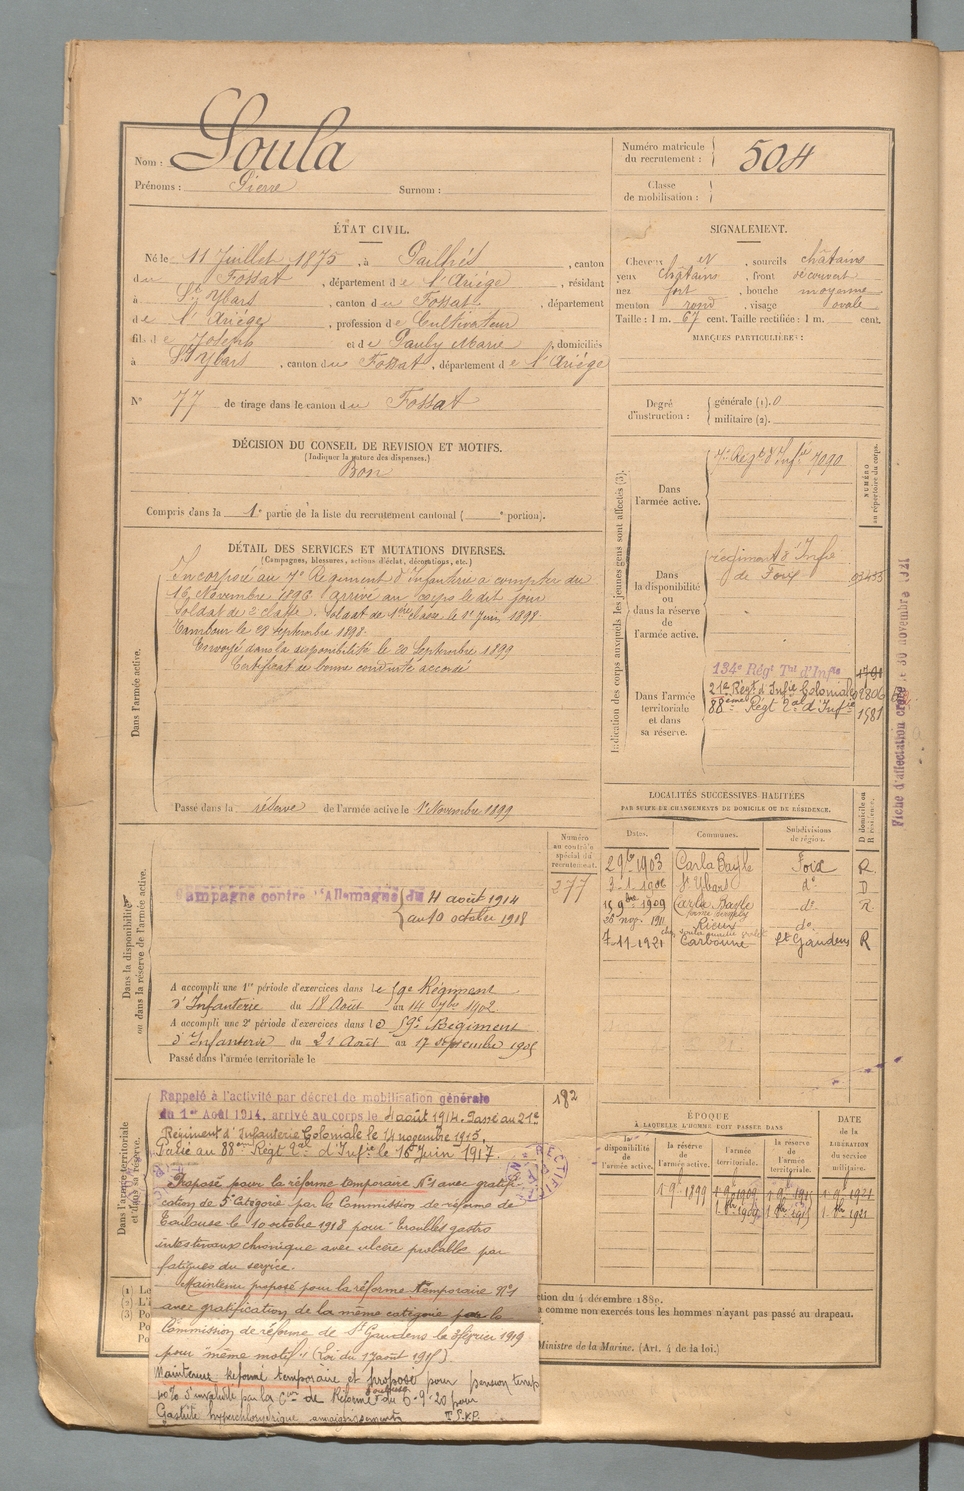 Nom : Soula
Prénoms : Pierre Surnom :
Numéro matricule du recrutement : 504
Classe de mobilisation :
ÉTAT CIVIL.
Né le 11 Juillet 1875, à Pailhés, canton
du Fossat, département de l'Ariège, résidant
à St Ybars, canton du Fossat, département
de l'Ariége, profession de Cultivateur
fils de Joseph et de Pauly Marie, domiciliés
à St Ybars, canton du Fossat, département de l'Ariége
N° 77 de tirage dans le canton du Fossat
SIGNALEMENT.
Cheveux N, sourcils châtains
yeux châtains, front découvert
nez fort, bouche moyenne
menton rond, visage ovale
Taille : 1 m. 67 cent. Taille rectifiée : 1 m. cent.
MARQUES PARTICULIÈRES :
Degré d'instruction : générale (1). 0
militaire (2).
DÉCISION DU CONSEIL DE REVISION ET MOTIFS.
(Indiquer la nature des dispenses.)
Bon
Compris dans la 1e partie de la liste du recrutement cantonal ( e portion).
DÉTAIL DES SERVICES ET MUTATIONS DIVERSES.
(Campagnes, blessures, actions d'éclat, décorations, etc.)
Dans l'armée active.
Incorporé au 7e Régiment d'infanterie a compter du
16 Novembre 1896 arrivé au corps le dit jour
Soldat de 2e classe. Soldat de 1ère classe le 1er Juin 1898
Tambour le septembre 1898.
Envoyé dans la disponibilité le 20 Septembre 1899
Certificat de bonne conduite accordé
Passé dans la réserve de l'armée active le 1er Novembre 1899
Indication des corps auxquels les jeunes gens sont affectés (3).
NUMÉRO au répertoire du corps.
Dans l'armée active.
7e Régt d'Infie 7090
Dans la disponibilité ou dans la réserve de l'armée active.
régiment d'Infie
de Foix
Dans l'armée territoriale et dans sa réserve.
134e Régt Tal d'Infie
21e Régt d'Infie Coloniale 02806
88ème Régt Tal d'Infie 1581
Fiche d'affectation créée le 30 novembre 1921
LOCALITÉS SUCCESSIVES HABITÉES
PAR SUITE DE CHANGEMENTS DE DOMICILE OU DE RÉSIDENCE.
Dates. Communes. Subdivisions de région. D domicile ou R résidence.
2 9bre 1903 Carla Bayle Foix R.
3-1-1906 St Ybars do D
15 9bre 1909 Carla Bayle do R.
26 nov. 1911 Rieux do
7-11-1921 Carbonne St Gaudens R
Dans la disponibilité ou dans la réserve de l'armée active.
Numéro au contrôle spécial du recrutement.
377
Campagne contre l'Allemagne du 4 août 1914
au 10 octobre 1918
A accompli une 1re période d'exercices dans le 59e Régiment
d'Infanterie du 18 Août au 14 7bre 1902
A accompli une 2e période d'exercices dans le 59e Régiment
d'Infanterie du 21 Août au 17 septembre 1905
Passé dans l'armée territoriale le
Dans l'armée territoriale et dans sa réserve.
182
Rappelé à l'activité par décret de mobilisation générale
du 1er Août 1914, arrivé au corps le 4 août 1914. Passé au 21e
Régiment d'Infanterie Coloniale le 14 novembre 1915.
Passé au 88ème Régt Tal d'Infie le 16 Juin 1917.
Proposé pour la réforme temporaire N°1 avec gratifi
cation de 5e Catégorie par la Commission de réforme de
Toulouse le 10 octobre 1918 pour troubles gastro
intestinaux chronique avec ulcère probables par
fatigues du service.
Maintenu proposé pour la réforme temporaire N°1
avec gratification de la même catégorie par la
Commission de réforme de St Gaudens le 3 février 1919
pour "même motif" (Loi du 17 août 1915).
Maintenu Réformé temporaire et proposé pour pension temp
10% d'invalidité par la Con de Réforme Toulouse du 6-9-20 pour
Gastrite hyperchlorydrique amaigrissement
ÉPOQUE
À LAQUELLE L'HOMME DOIT PASSER DANS
la disponibilité de l'armée active. la réserve de l'armée active. l'armée territoriale. la réserve de l'armée territoriale.
DATE de la LIBÉRATION du service militaire.
1er 9bre 1899 1er 9bre 1909 1er 9bre 1915 1er 9bre 1921
ction du 4 décembre 1889.
comme non exercés tous les hommes n'ayant pas passé au drapeau.
Ministre de la Marine. (Art. 4 de la loi.)